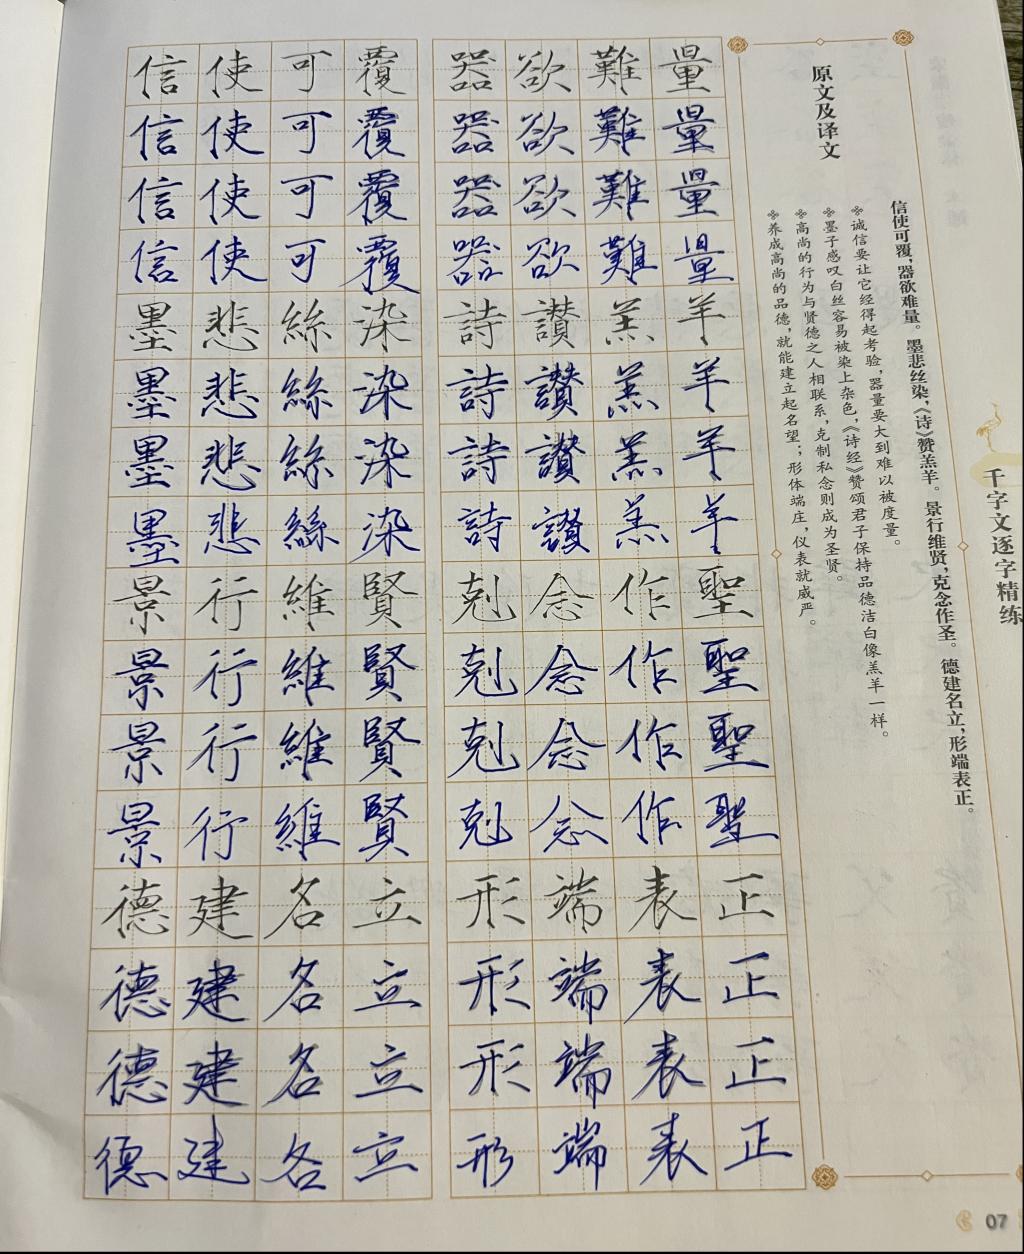 信使可覆 器欲難量
信使可覆 器欲難量
信使可覆 器欲難量
信使可覆 器欲難量
墨悲絲染 詩讚羔羊
墨悲絲染 詩讚羔羊
墨悲絲染 詩讚羔羊
墨悲絲染 詩讚羔羊
景行維賢 剋念作聖
景行維賢 剋念作聖
景行維賢 剋念作聖
景行維賢 剋念作聖
德建名立 形端表正
德建名立 形端表正
德建名立 形端表正
德建名立 形端表正
千字文逐字精练
原文及译文
信使可覆，器欲难量。墨悲丝染，《诗》赞羔羊。景行维贤，克念作圣。德建名立，形端表正。
诚信要让它经得起考验，器量要大到难以被度量。
墨子感叹白丝容易被染上杂色，《诗经》赞颂君子保持品德洁白像羔羊一样。
高尚的行为与贤德之人相联系，克制私念则成为圣贤。
养成高尚的品德，就能建立起名望；形体端庄，仪表就威严。
07